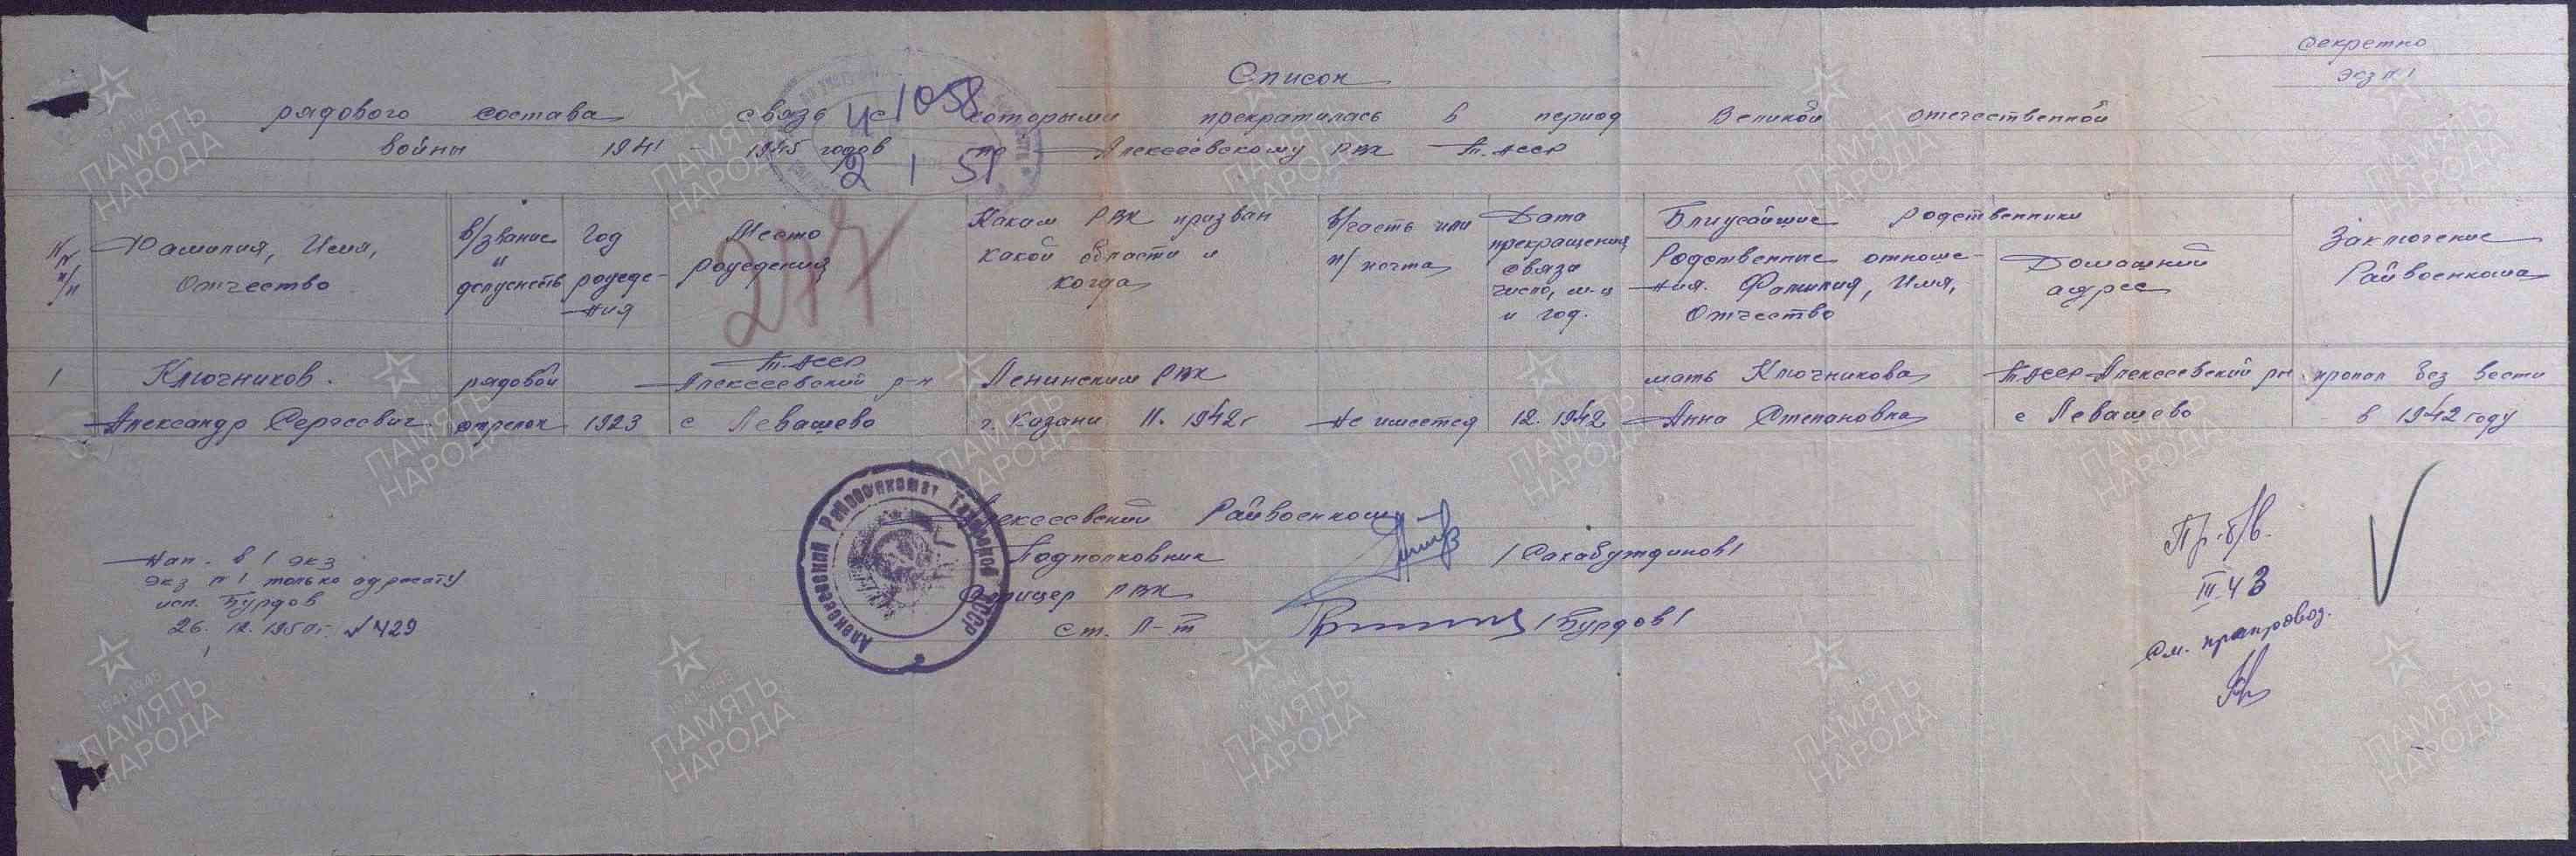 Секретно
экз n 1
Список
рядового состава связь с которыми прекратилась в период Великой отечественной
войны 1941 - 1945 годов по Алексеевскому РВК Т.АССР
1058
2 1 51
217
NN п/п
Фамилия, Имя, Отчество
в/звание и должность
Год рождения
Место рождения
Каким РВК призван какой области и когда
в/часть или п/почта
Дата прекращения связи число, м-ц и год.
Ближайшие родственники
Родственные отноше-ния. Фамилия, Имя, Отчество
Домашний адрес
Заключение Райвоенкома
1 Ключников. рядовой Т.АССР Алексеевский р-н Ленинским РВК мать Ключникова Т.АССР Алексеевский рн. пропал без вести
Александр Сергеевич стрелок 1923 с Левашево г. Казани 11. 1942г Не имеется 12. 1942 Анна Степановна с Левашево в 1942 году
Алексеевский Райвоенком
Подполковник /Сахабутдинов/
Офицер РВК
Ст. Л-т /Бурдов/
Алексеевский Райвоенкомат Татарской АССР
Нап. в 1 экз
экз n 1 только адресату
исп. Бурдов
26. 12. 1950г. №429
Пр. б/в.
III.43
См. препровод.
ПАМЯТЬ НАРОДА
1941-1945